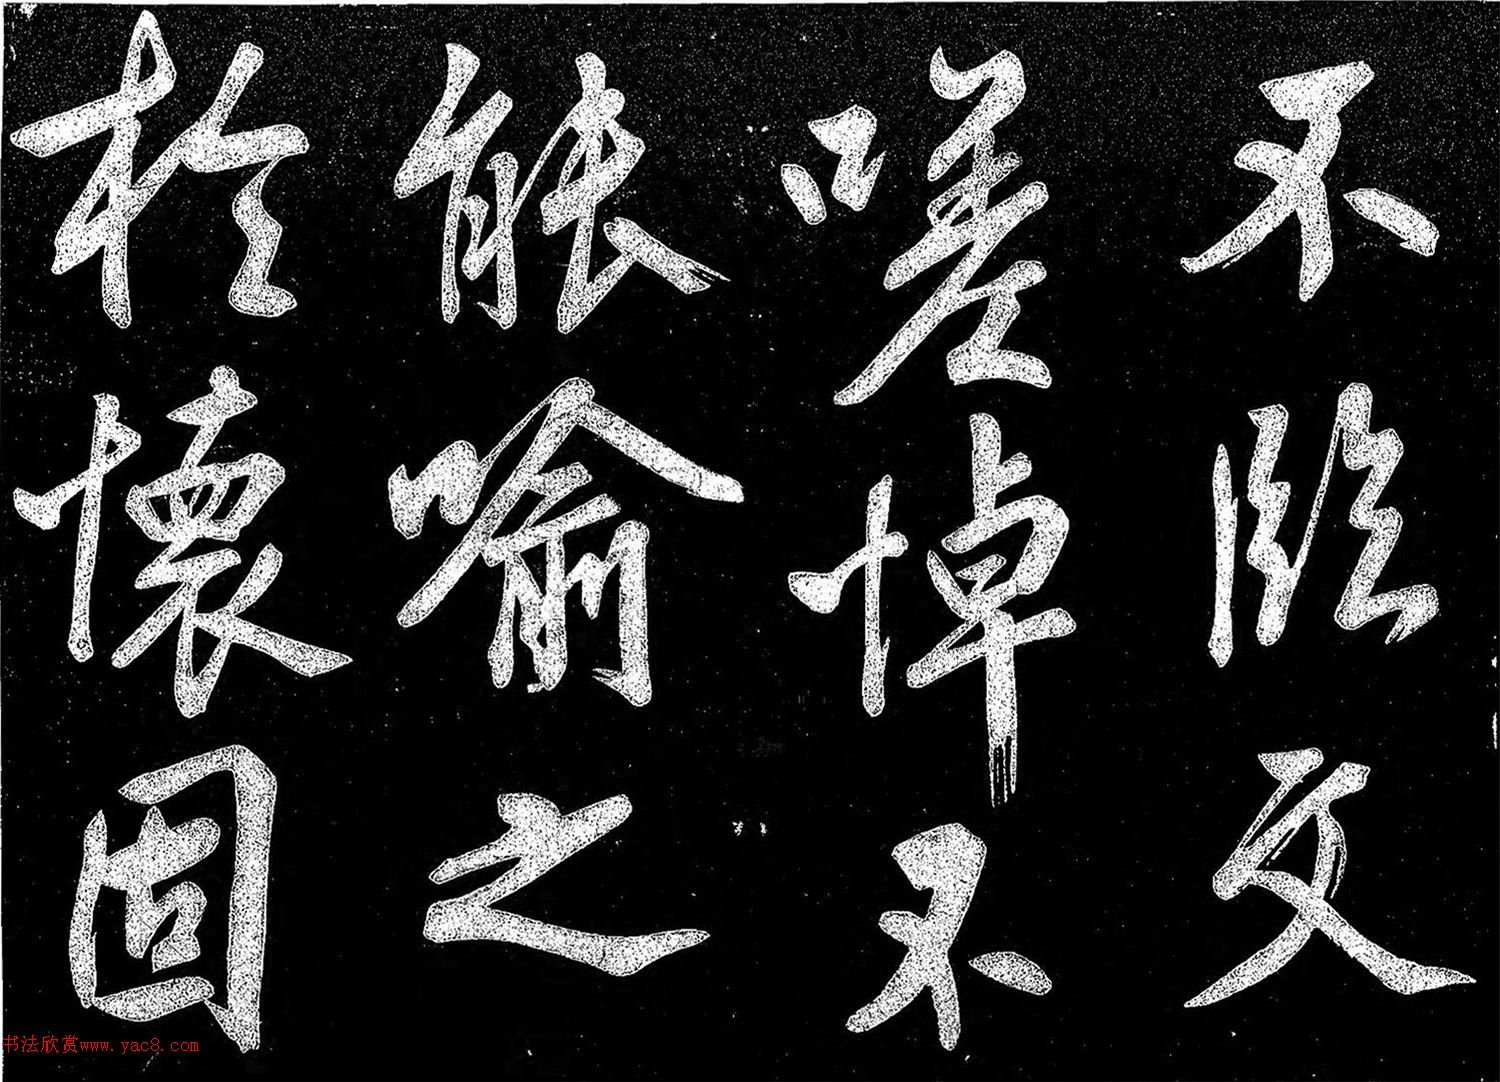 不臨文
嗟悼不
能喻之
於懷固
书法欣赏www.yac8.com